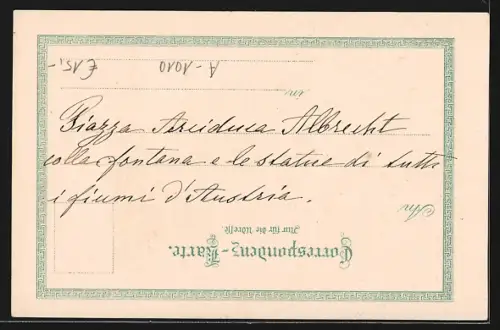 €15,-
A-1010
in
Piazza Arciduca Albrecht
colla fontana e le statue di tutti
i fiumi d'Austria.
An
Nur für die Adresse
Correspondenz-Karte.